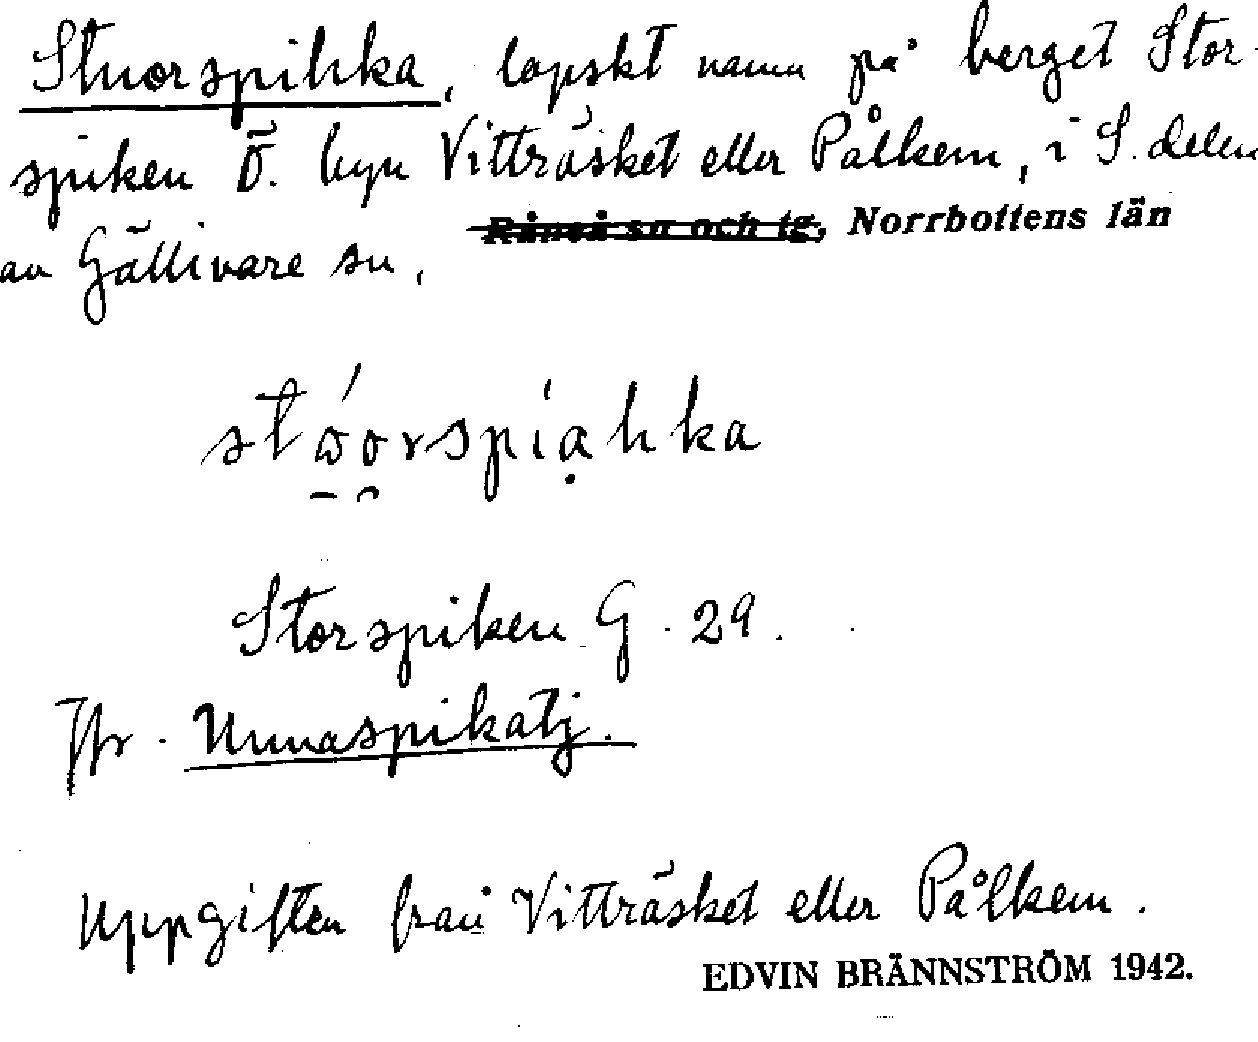 Stuorspihka, lapskt namn på berget Stor-
spiken Ö. byn Vitträsket eller Pålkem, i S. delen
Råneå sn och tg, Norrbottens län
av Gällivare sn,
stɷ́orspiạhka
Storspiken G. 29.
Jfr. Unnaspikatj.
Uppgiften från Vitträsket eller Pålkem.
EDVIN BRÄNNSTRÖM 1942.